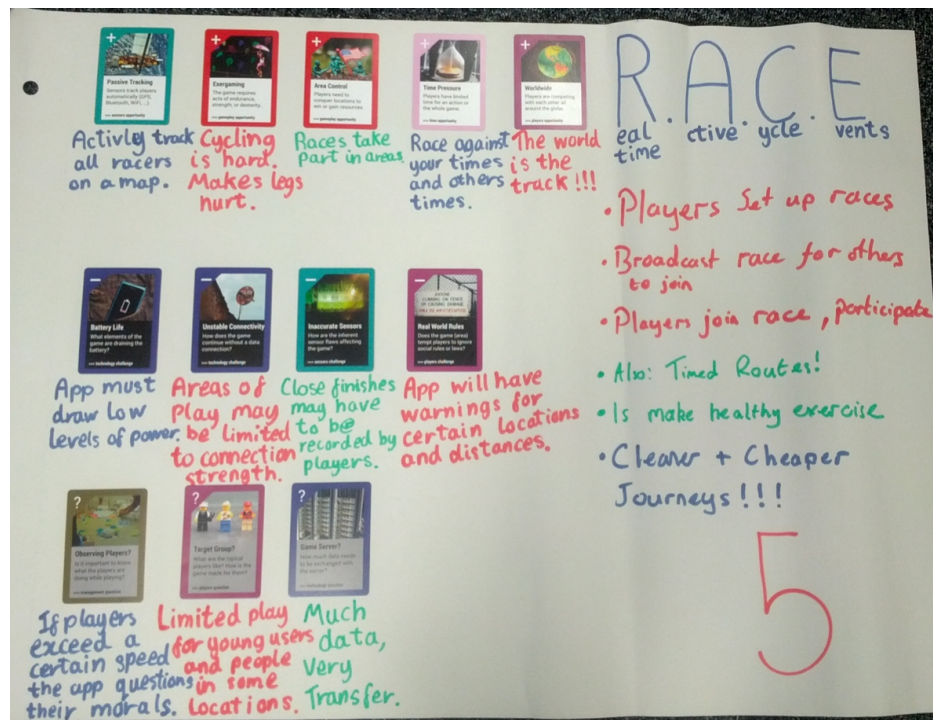 R.A.C.E
eal ctive ycle vents
time
+
Passive Tracking
Sensors track players
automatically (GPS,
Bluetooth, WiFi, ...).
sensors opportunity
Activley track
all racers
on a map.
+
Exergaming
The game requires
acts of endurance,
strength, or dexterity
gameplay opportunity
Cycling
is hard.
Makes legs
hurt.
+
Area Control
Players need to
conquer locations to
win or gain resources.
gameplay opportunity
Races take
part in areas
+
Time Pressure
Players have limited
time for an action or
the whole game.
time opportunity
Race against
your times
and others
times.
+
Worldwide
Players are competing
with each other all
around the globe.
players opportunity
The world
is the
track!!!
• Players Set up races
• Broadcast race for others
to join
• Players join race, participate
• Also: Timed Routes!
• Is make healthy exercise
• Cleaner + Cheaper
Journeys!!!
5
–
Battery Life
What elements of the
game are draining the
battery?
technology challenge
App must
draw low
levels of power.
–
Unstable Connectivity
How does the game
continue without a data
connection?
technology challenge
Areas of
Play may
be limited
to connection
strength.
–
Inaccurate Sensors
How are the inherent
sensor flaws affecting
the game?
sensors challenge
Close finishes
may have
to be
recorded by
players.
–
Real World Rules
Does the game (area)
tempt players to ignore
social rules or laws?
players challenge
App will have
warnings for
certain locations
and distances.
?
Observing Players?
Is it important to know
what the players are
doing while playing?
management question
If players
exceed a
certain speed
the app questions
their morals.
?
Target Group?
What are the typical
players like? How is the
game made for them?
players question
Limited play
for young users
and people
in some
locations.
?
Game Server?
How much data needs
to be exchanged with
the server?
technology question
Much
data,
Very
Transfer.